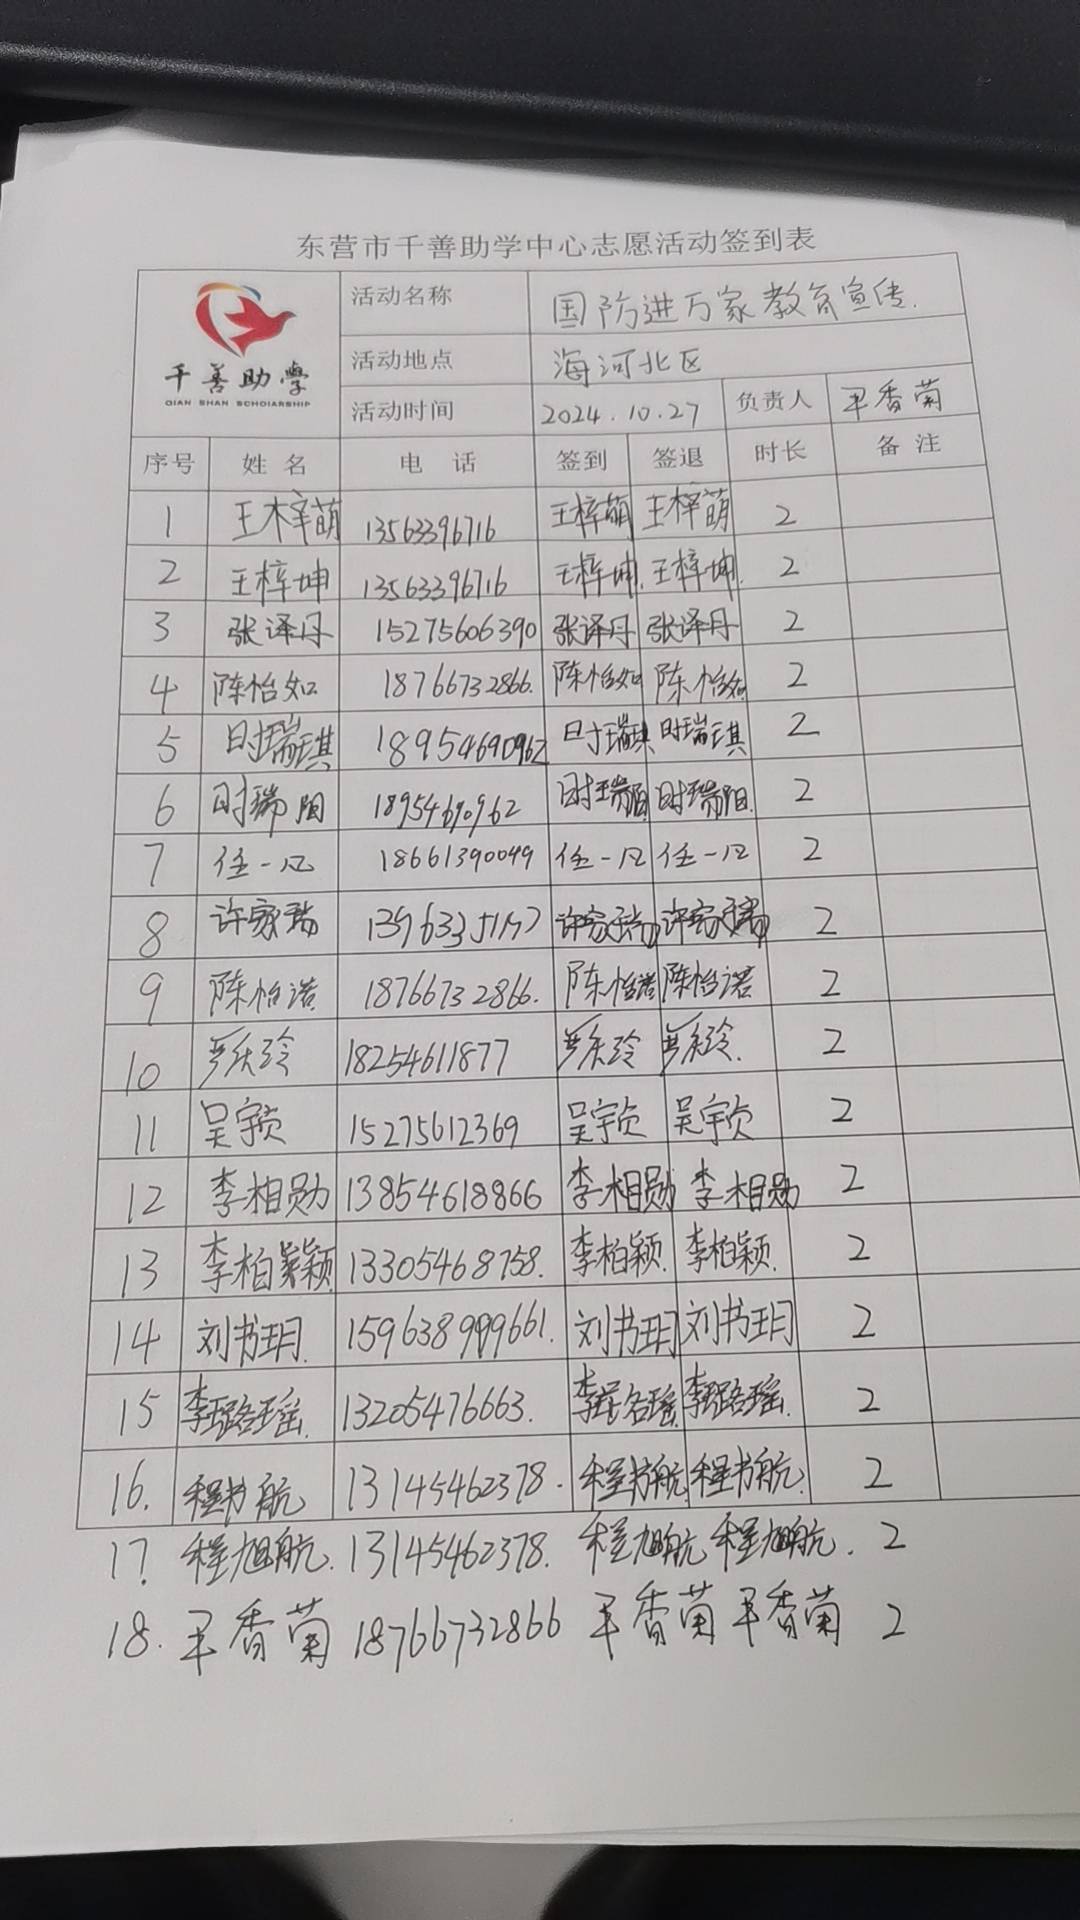 东营市千善助学中心志愿活动签到表
千善助学
QIAN SHAN SCHOIARSHIP
活动名称 国防进万家教育宣传.
活动地点 海河北区
活动时间 2024.10.27 负责人 平香菊
序号 姓名 电话 签到 签退 时长 备注
1 王梓萌 13563396716 王梓萌 王梓萌 2
2 王梓坤 13563396716 王梓坤. 王梓坤. 2
3 张译丹 15275606390 张译丹 张译丹 2
4 陈怡如 18766732866. 陈怡如 陈怡如 2
5 时瑞琪 18954690962 时瑞琪 时瑞琪 2
6 时瑞阳 18954690962 时瑞阳 时瑞阳. 2
7 任一凡 18661390049 任一凡 任一凡 2
8 许家瑞 许家瑞 许家瑞 2
9 陈怡诺 18766732866. 陈怡诺 陈怡诺 2
10 18254611877 2
11 吴宇贞 15275612369 吴宇贞 吴宇贞 2
12 李相勋 13854618866 李相勋 李相勋 2
13 李柏颖 13305468758. 李柏颖. 李柏颖. 2
14 刘书玥. 刘书玥 刘书玥 2
15 李璐瑶. 13205476663. 李璐瑶. 李璐瑶. 2
16. 程书航 13145462378. 程书航. 程书航. 2
17. 程旭航. 13145462378. 程旭航 程旭航. 2
18. 平香菊 18766732866 平香菊 平香菊 2